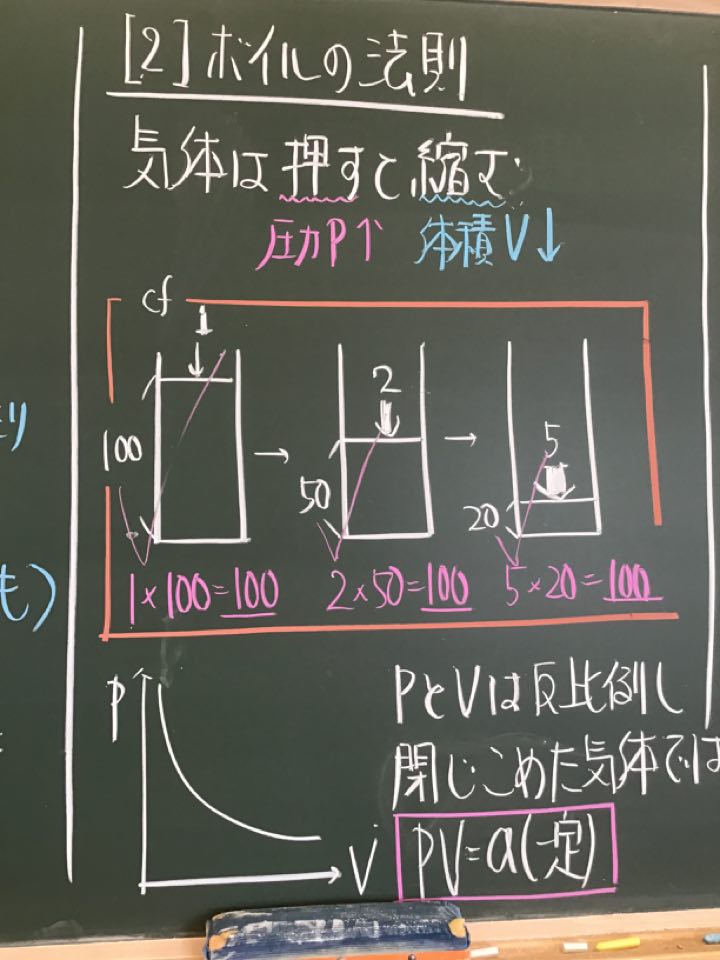 [2] ボイルの法則
気体は押すと縮む
圧力P↑ 体積V↓
cf
1
100
→
2
50
→
5
20
1×100=100
2×50=100
5×20=100
P
V
PとVは反比例し
閉じこめた気体では
PV=a(一定)
り
も)